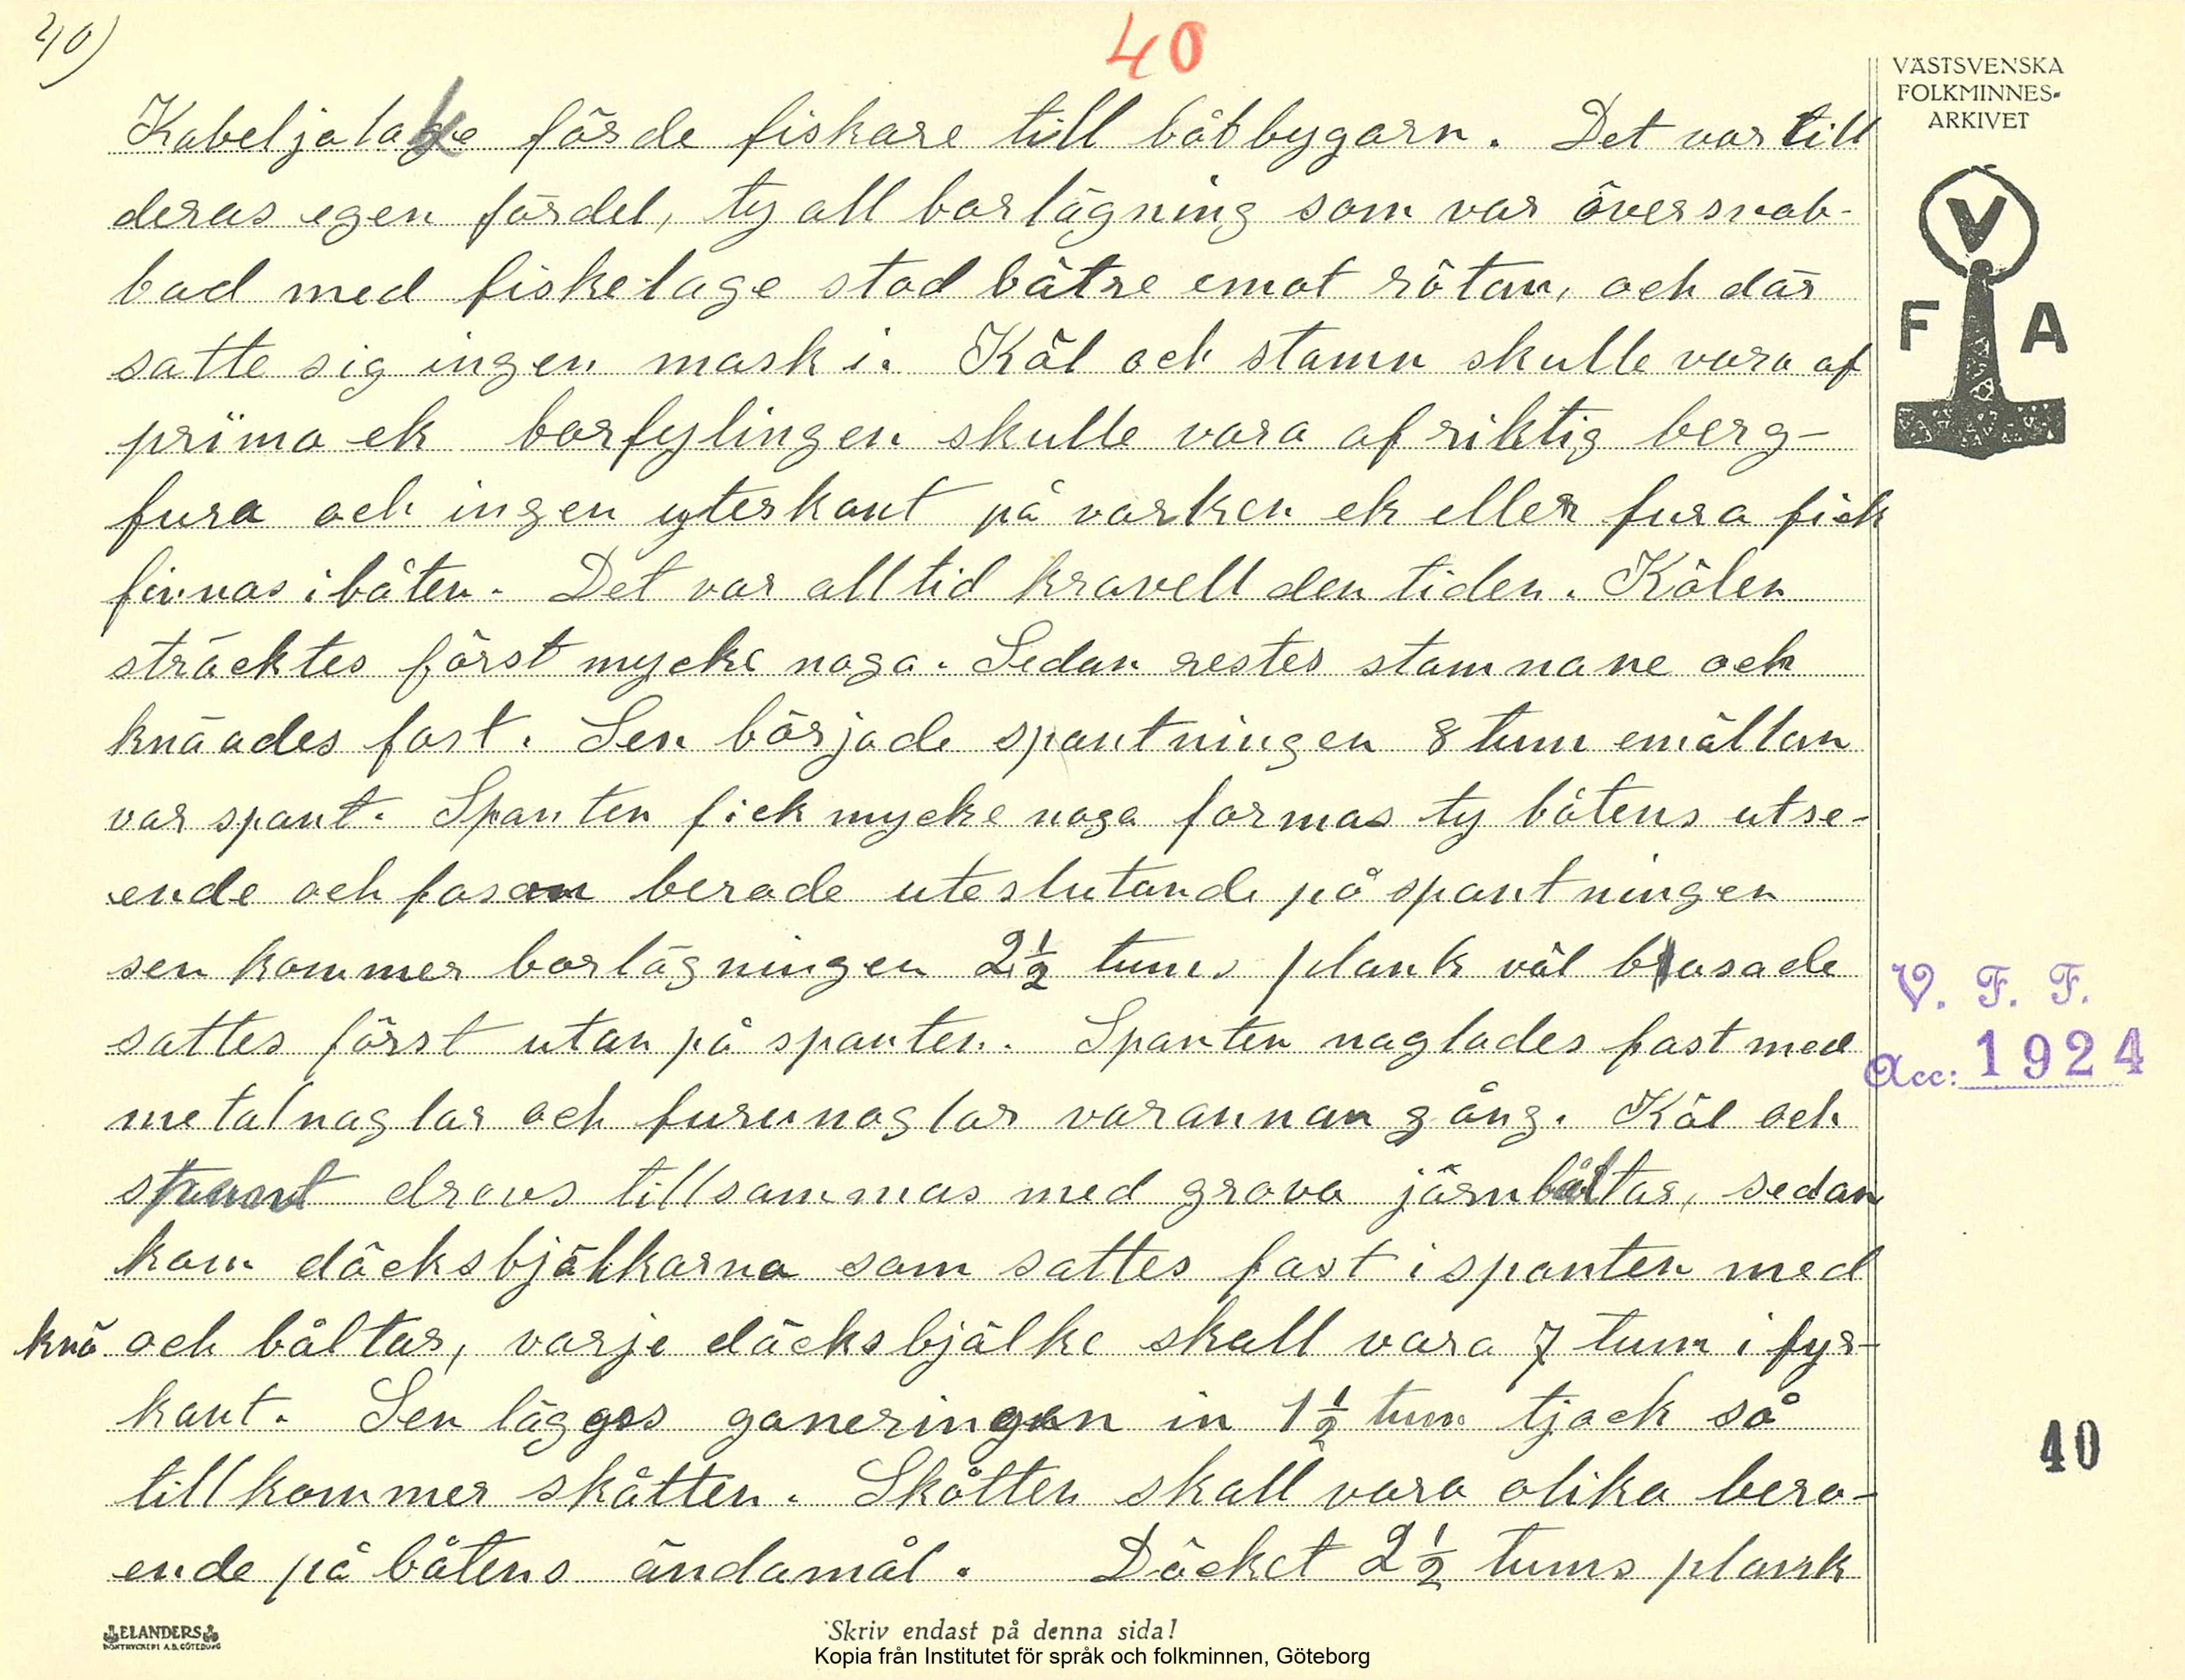 40)
40
VÄSTSVENSKA
FOLKMINNES-
ARKIVET
Kabeljalake förde fiskare till båtbygarn. Det var till
deras egen fördel, ty all borlägning som var översvab-
bad med fiskelage stod bätre emot rötan, och där
satte sig ingen mask i. Köl och stamn skulle vara af
prima ek borfylingen skulle vara af riktig berg-
fura och ingen yterkant på varken ek eller fura fick
finnas i båten. Det var alltid kravell den tiden. Kölen
sträcktes först mycke noga. Sedan restes stamnane och
knäades fast. Sen började spantningen 8 tum emällan
var spant. Spanten fick mycke noga formas ty båtens utse-
ende och fason berode uteslutande på spantningen
sen kommer borlägningen 2½ tums plank väl basade
sattes först utan på spanten. Spanten naglades fast med
metalnaglar och furunaglar varannan gång. Köl och
drevs tillsammas med grova järnbåltar, sedan
kom däcksbjälkarna som sattes fast i spanten med
knä och båltar, varje däcksbjälke skall vara 7 tum i fyr-
kant. Sen lägges garneringen in 1½ tum tjock så
tillkommer skåtten. Skåtten skall vara olika bero-
ende på båtens ändamål. Däcket 2½ tums plank
V
F A
V. F. F.
Acc: 1924
40
ELANDERS
BOKTRYCKERI A.B. GÖTEBORG
Skriv endast på denna sida!
Kopia från Institutet för språk och folkminnen, Göteborg